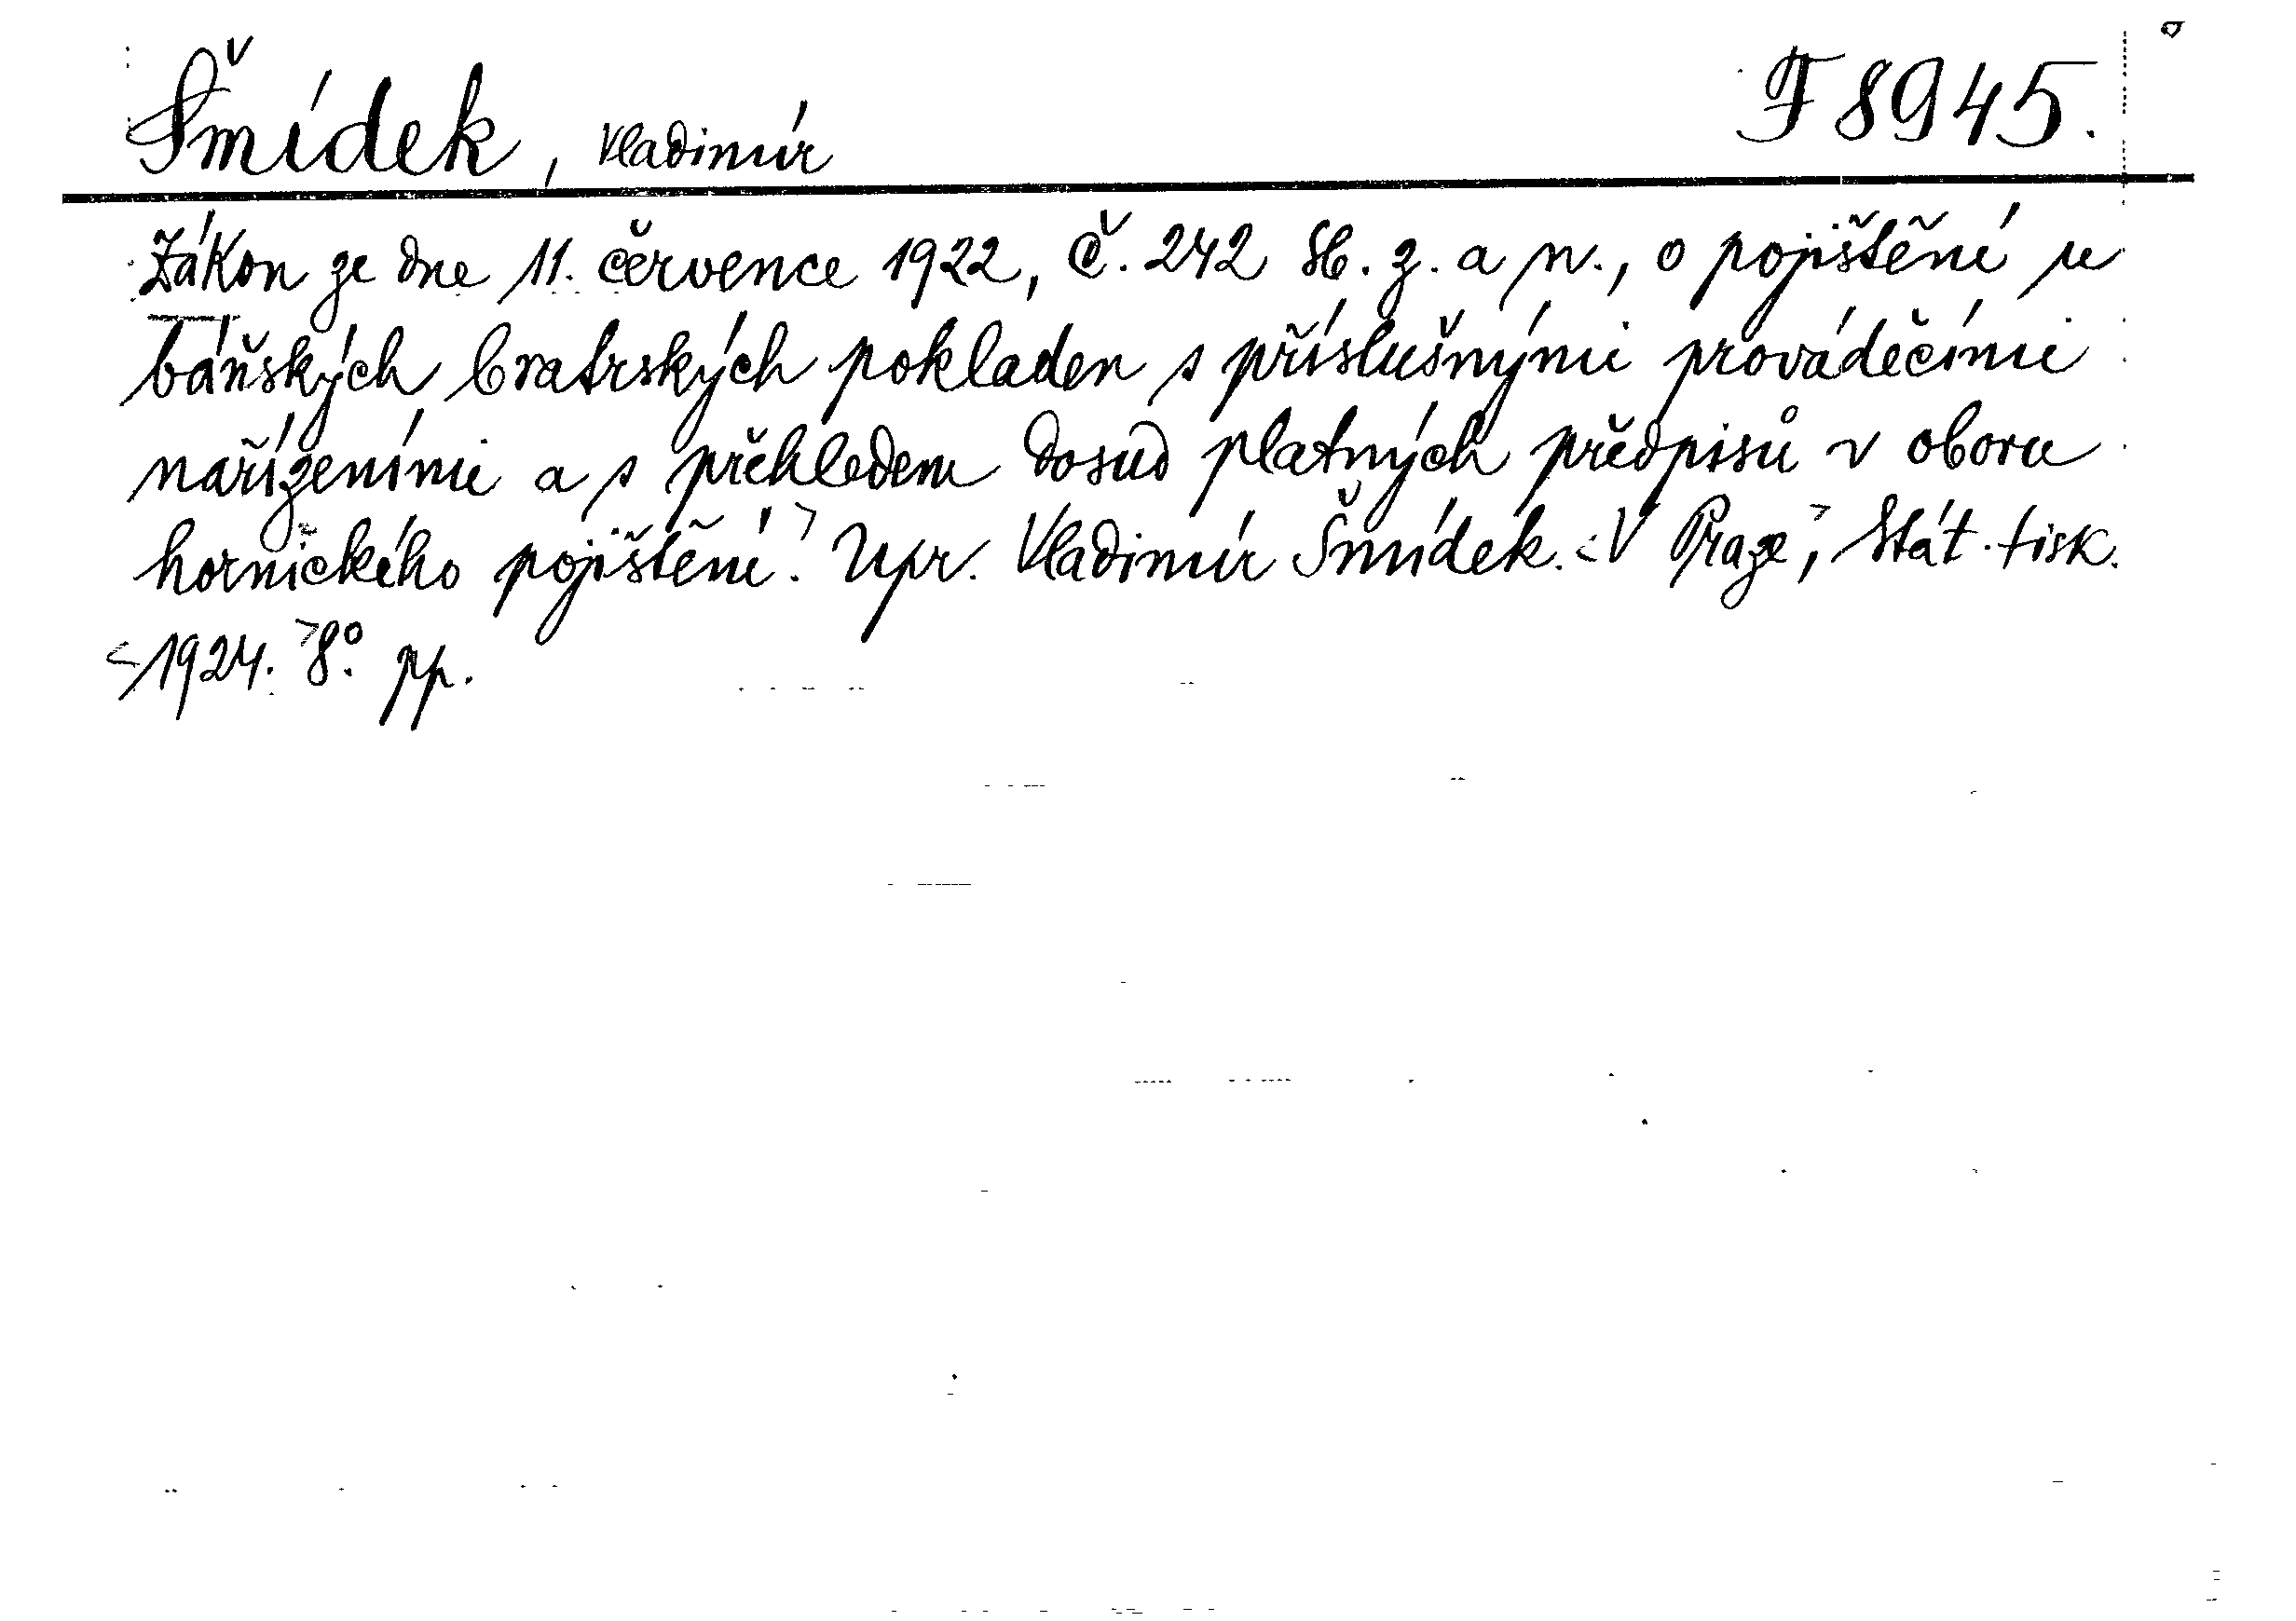 Šmídek, Vladimír F 8945.
Zákon ze dne 11. července 1922, č. 242 Sb. z. a n., o pojištění u
báňských bratrských pokladen s příslušnými prováděcími
nařízeními a s přehledem dosud platných předpisů v oboru
hornického pojištění. Upr. Vladimír Šmídek. <V Praze>, Stát. tisk.
<1924.> 8°. pp.